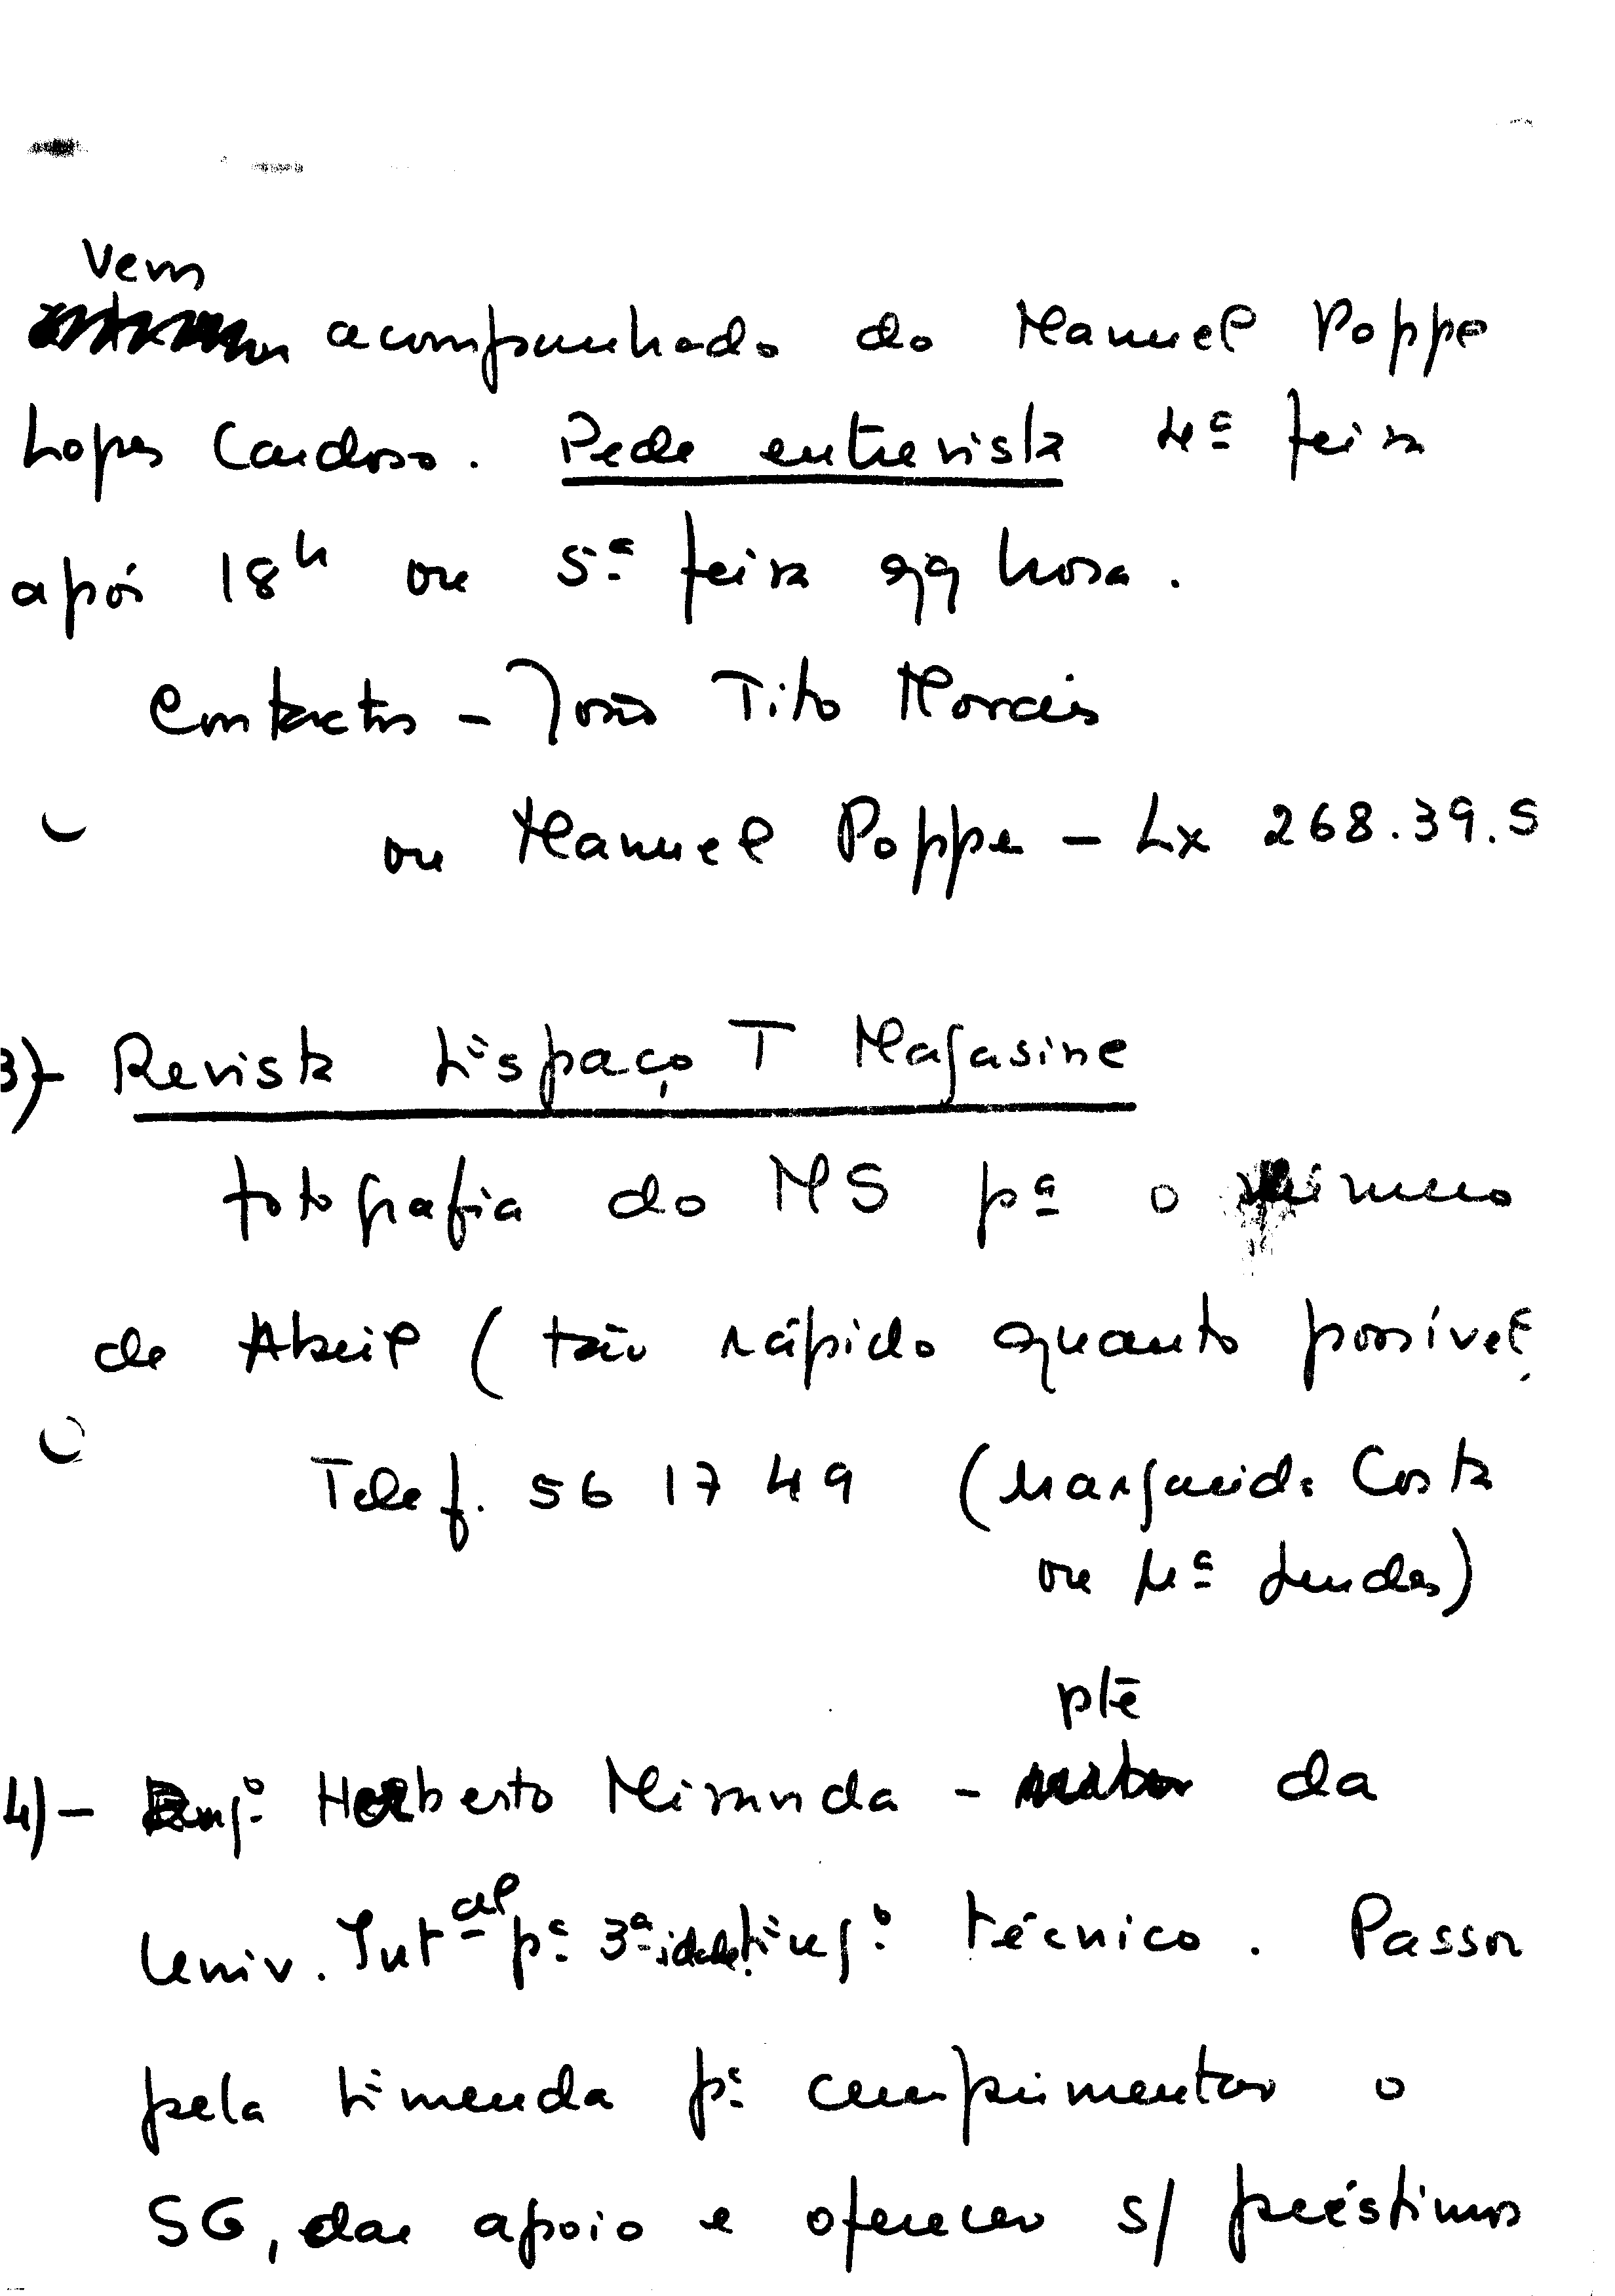 Vem
acompanhado do Manuel Poppe
Lopes Cardoso. Pede entrevista 4ª feira
após 18h ou 5ª feira qq hora.
Contactos - João Tito Morais
ou Manuel Poppe - Lx 268.39.5
3)- Revista Espaço T Magasine
fotografia do MS pª o número
de Abril (tão rápido quanto possível
Telef. 56 17 49 (Margarida Costa
ou Mª Lurdes)
pte
4)- Engº Herberto Miranda - da
Univ. Intal pª 3ª idade. Engº técnico. Passou
pela Emenda pª cumprimentar o
SG, dar apoio e oferecer s/ préstimos